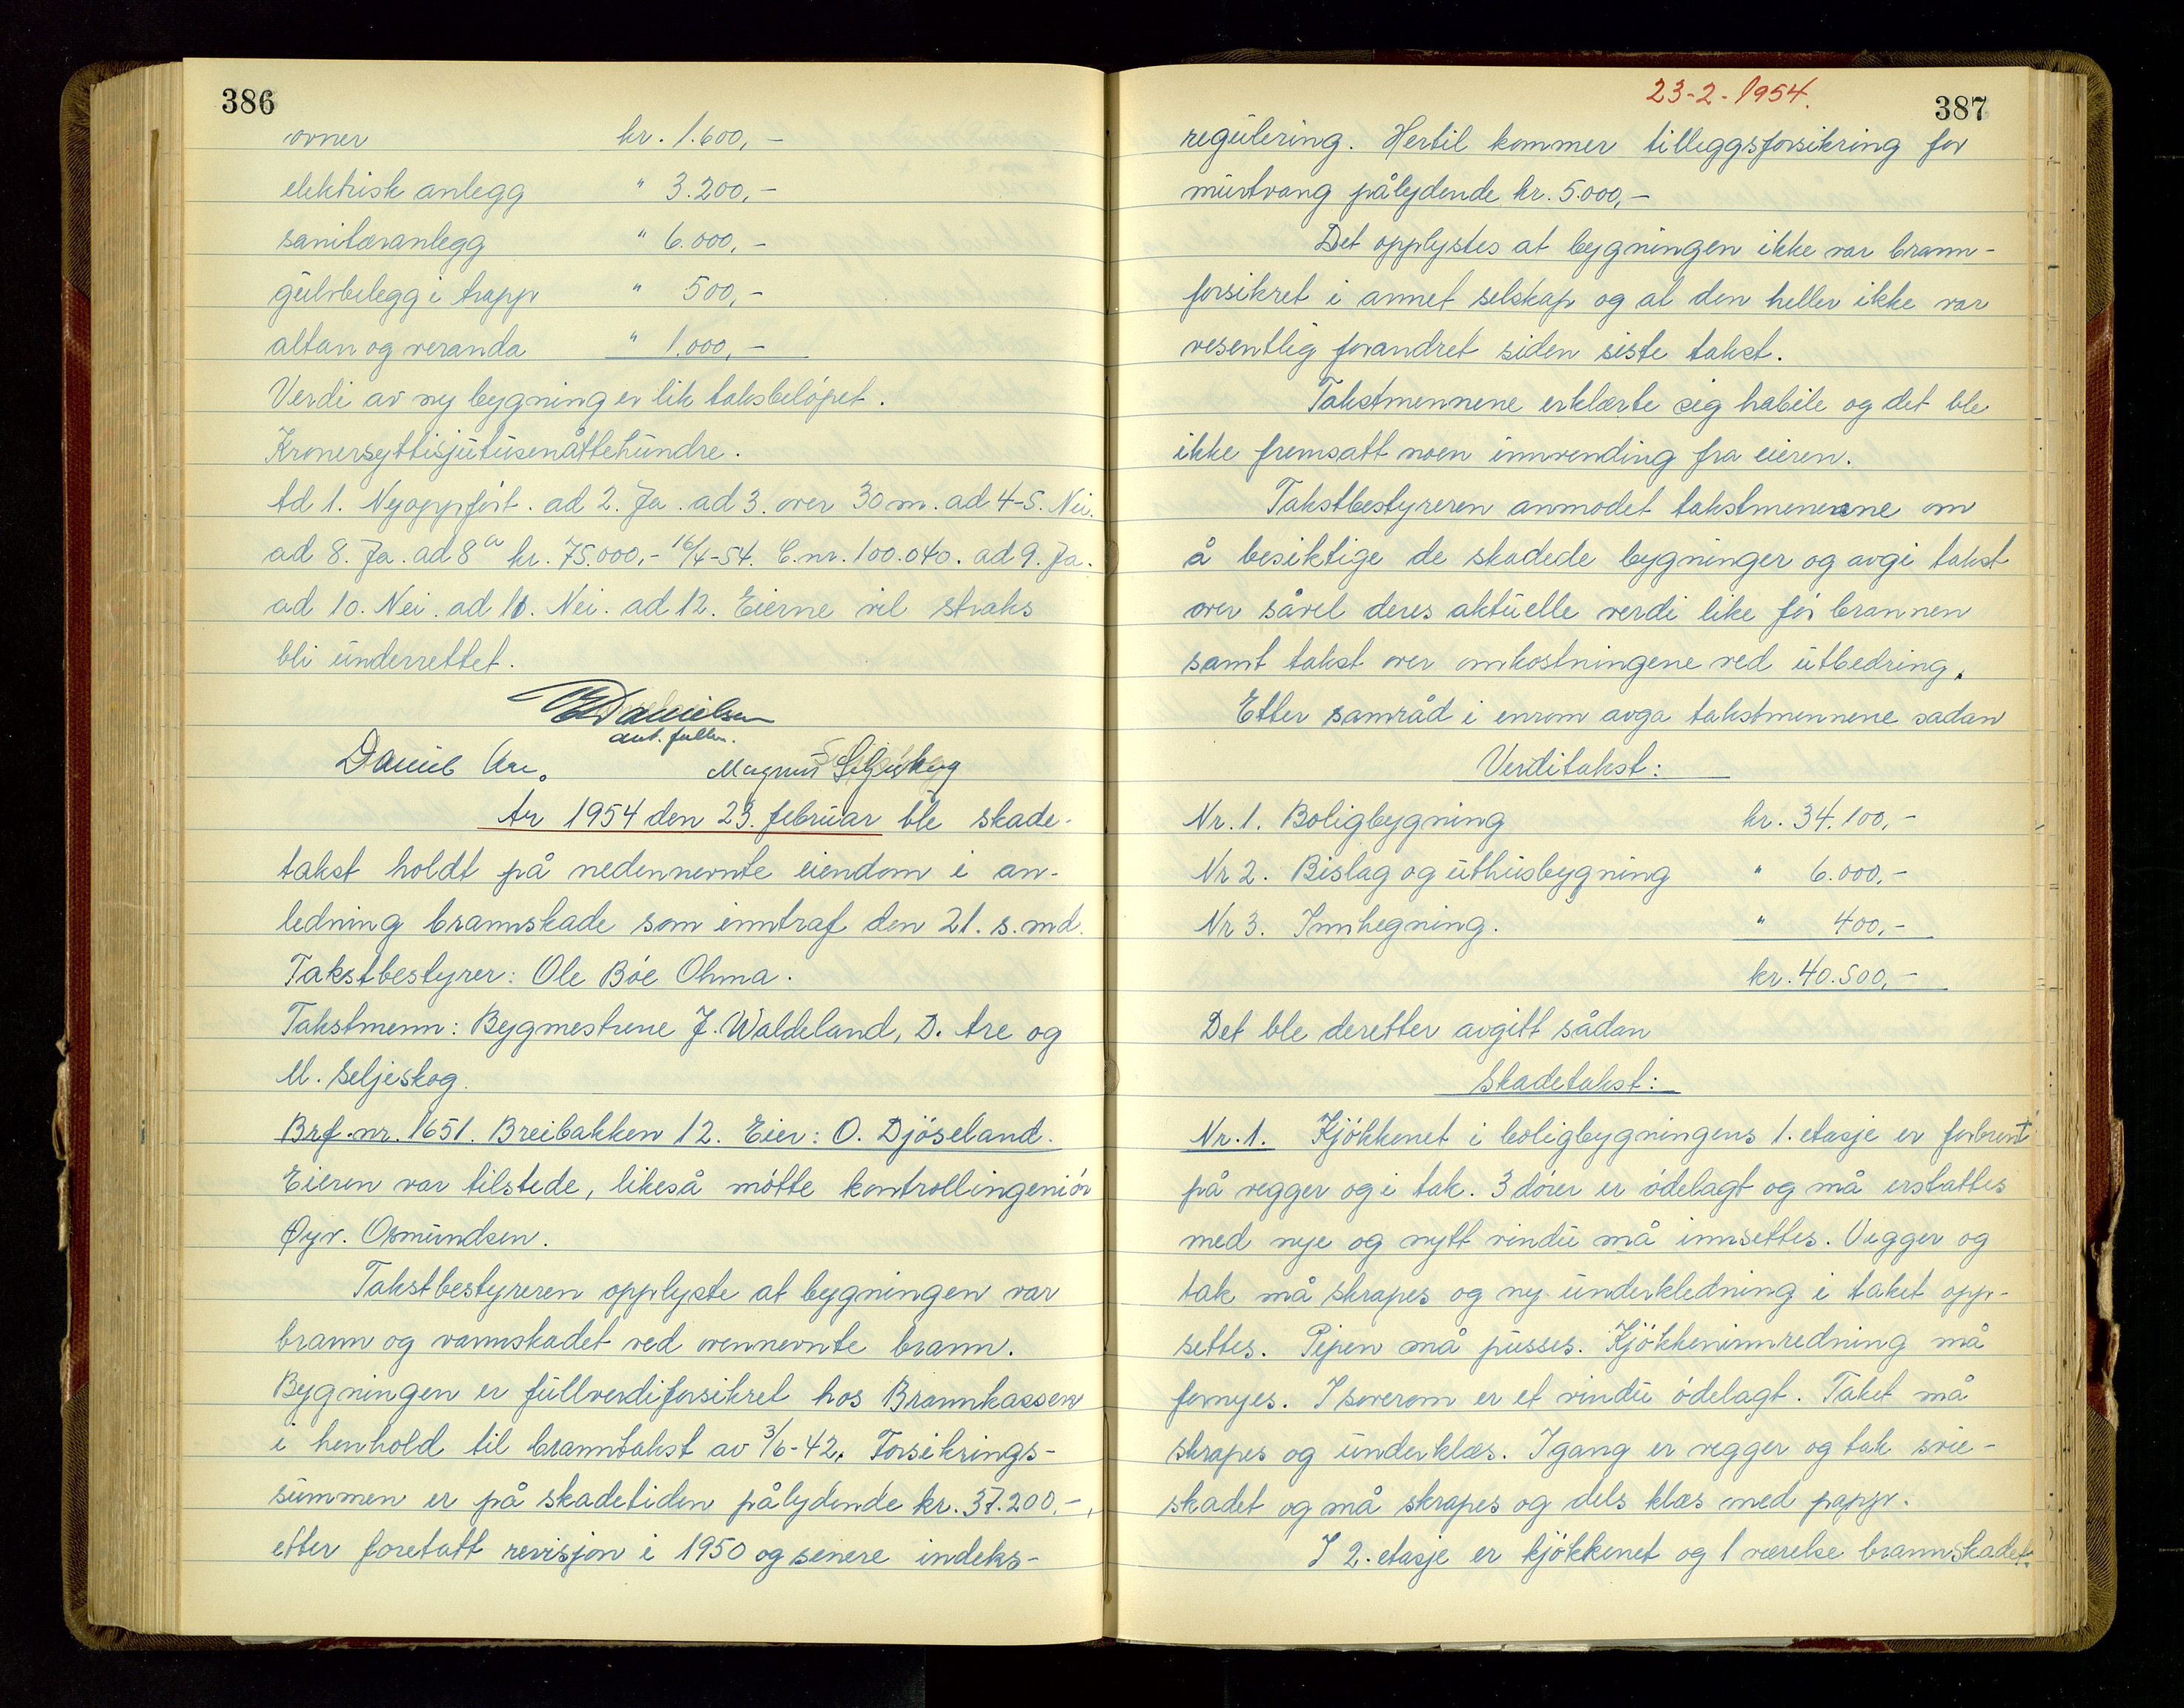 386
ovner kr. 1.600,-
elektrisk anlegg " 3.200,-
sanitæranlegg " 6.000,-
gulvbelegg i trapp " 500,-
altan og veranda " 1.000,-
Verdi av ny bygning er lik taksbeløpet.
Kronersyttisjutusenåttehundre.
Ad 1. Nyoppført. ad 2. Ja. ad 3. over 30 m. ad 4-5. Nei.
ad 8. Ja. ad 8a kr. 75.000,- 16/4-54. C.nr. 100.040. ad 9. Ja.
ad 10. Nei. ad 11. Nei. ad 12. Eierne vil straks
bli underrettet.
Danielsen
aut. fullm.
Daniel Are. Magnus Seljeskog
År 1954 den 23. februar ble skade-
takst holdt på nedennevnte eiendom i an-
ledning brannskade som inntraf den 21. s. md.
Takstbestyrer: Ole Bøe Ohma.
Takstmenn: Bygmestrene J. Waldeland, D. Are og
M. Seljeskog.
Brf.nr. 1651. Breibakken 12. Eier: O. Djøseland.
Eieren var tilstede, likeså møtte kontrollingeniør
Øyv. Osmundsen.
Takstbestyreren opplyste at bygningen var
brann og vannskadet ved ovennevnte brann.
Bygningen er fullverdiforsikret hos Brannkassen
i henhold til branntakst av 3/6-42. Forsikrings-
summen er på skadetiden pålydende kr. 37.200,-,
etter foretatt revisjon i 1950 og senere indeks-
23-2-1954.
387
regulering. Hertil kommer tilleggsforsikring for
murtvang pålydende kr. 5.000,-
Det opplystes at bygningen ikke var brann-
forsikret i annet selskap og at den heller ikke var
vesentlig forandret siden siste takst.
Takstmennene erklærte seg habile og det ble
ikke fremsatt noen innvending fra eieren.
Takstbestyreren anmodet takstmennene om
å besiktige de skadede bygninger og avgi takst
over såvel deres aktuelle verdi like før brannen
samt takst over omkostningene ved utbedring.
Etter samråd i enrom avga takstmennene sadan
Verditakst:
Nr. 1. Boligbygning kr. 34.100,-
Nr 2. Bislag og uthusbygning " 6.000,-
Nr 3. Innhegning. " 400,-
kr. 40.500,-
Det ble deretter avgitt sådan
Skadetakst:
Nr. 1. Kjøkkenet i boligbygningens 1. etasje er forbrent
på vegger og i tak. 3 dører er ødelagt og må erstattes
med nye og nytt vindu må innsettes. Vegger og
tak må skrapes og ny underkledning i taket opp-
settes. Pipen må pusses. Kjøkkeninnredning må
fornyes. I soverom er et vindu ødelagt. Taket må
skrapes og underklæs. I gang er vegger og tak svie-
skadet og må skrapes og dels klæs med papp.
I 2. etasje er kjøkkenet og 1 værelse brannskadet.